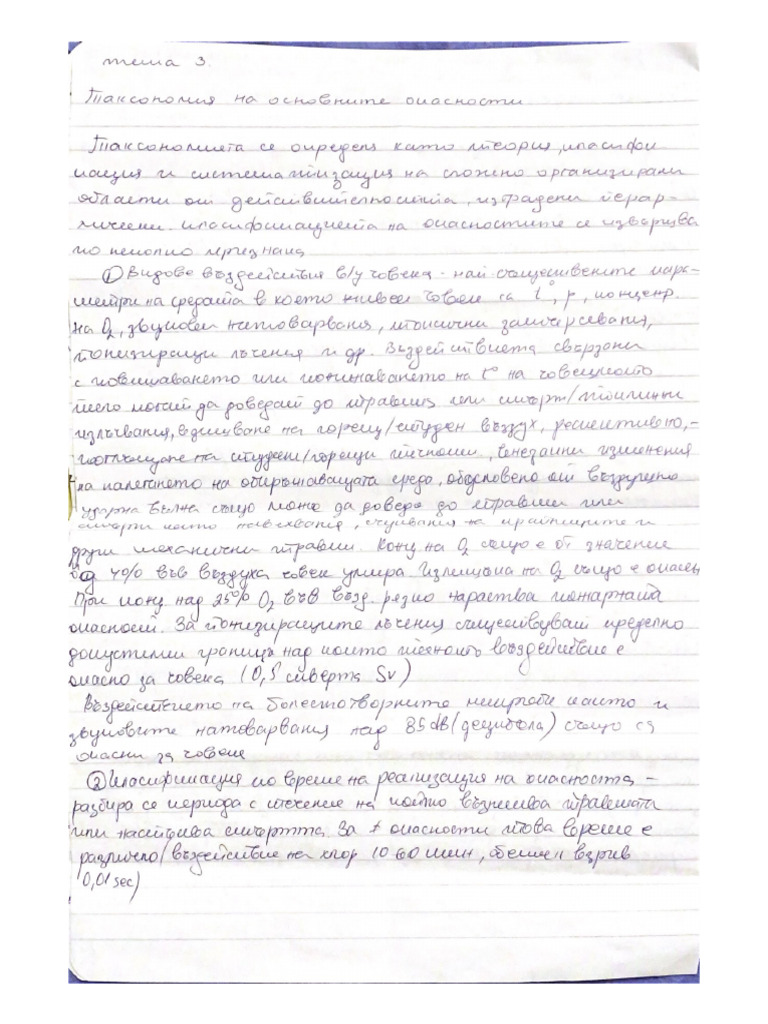 тема 3.
Таксономия на основните опасности
Таксономията се определя като теория, класифи
кация и систематизация на сложно организирани
области от действителността, изградени йерар-
хически. Класификацията на опасностите се извършва
по няколко признака
① Видове въздействия в/у човека - най-съществените пара-
метри на средата в която живее човек са t°, p, концентр.
на O2, звукови натоварвания, токсични замърсявания,
йонизиращи лъчения и др. Въздействията свързани
с повишаването или понижаването на t° на човешкото
тяло могат да доведат до травми или смърт/топлинни
излъчвания, вдишване на горещ/студен въздух, респективно,-
поглъщане на студени/горещи течности, внезапни изменения
на налягането на обкръжаващата среда, обусловено от въздушно
ударна вълна също може да доведе до травми или
смърт, счупвания на крайниците и
други механични травми. Конц на O2 също е от значение
Под 4% във въздуха човек умира. Излишъка на O2 също е опасен
При конц над 25% O2 във възд. рязко нараства пожарната
опасност. За йонизиращите лъчения съществуват пределно
допустими граници над които тяхното въздействие е
опасно за човека (0,5 сиверта Sv)
Въздействието на болестотворните микроби както и
звуковите натоварвания над 85 dB (децибела) също са
опасни за човек
② Класификация по време на реализация на опасността -
разбира се периода с течение на който възниква травмата
или настъпва смъртта. За ≠ опасности това време е
различно/въздействие на хлор 10 60 мин, обемен взрив
0,01 sec)